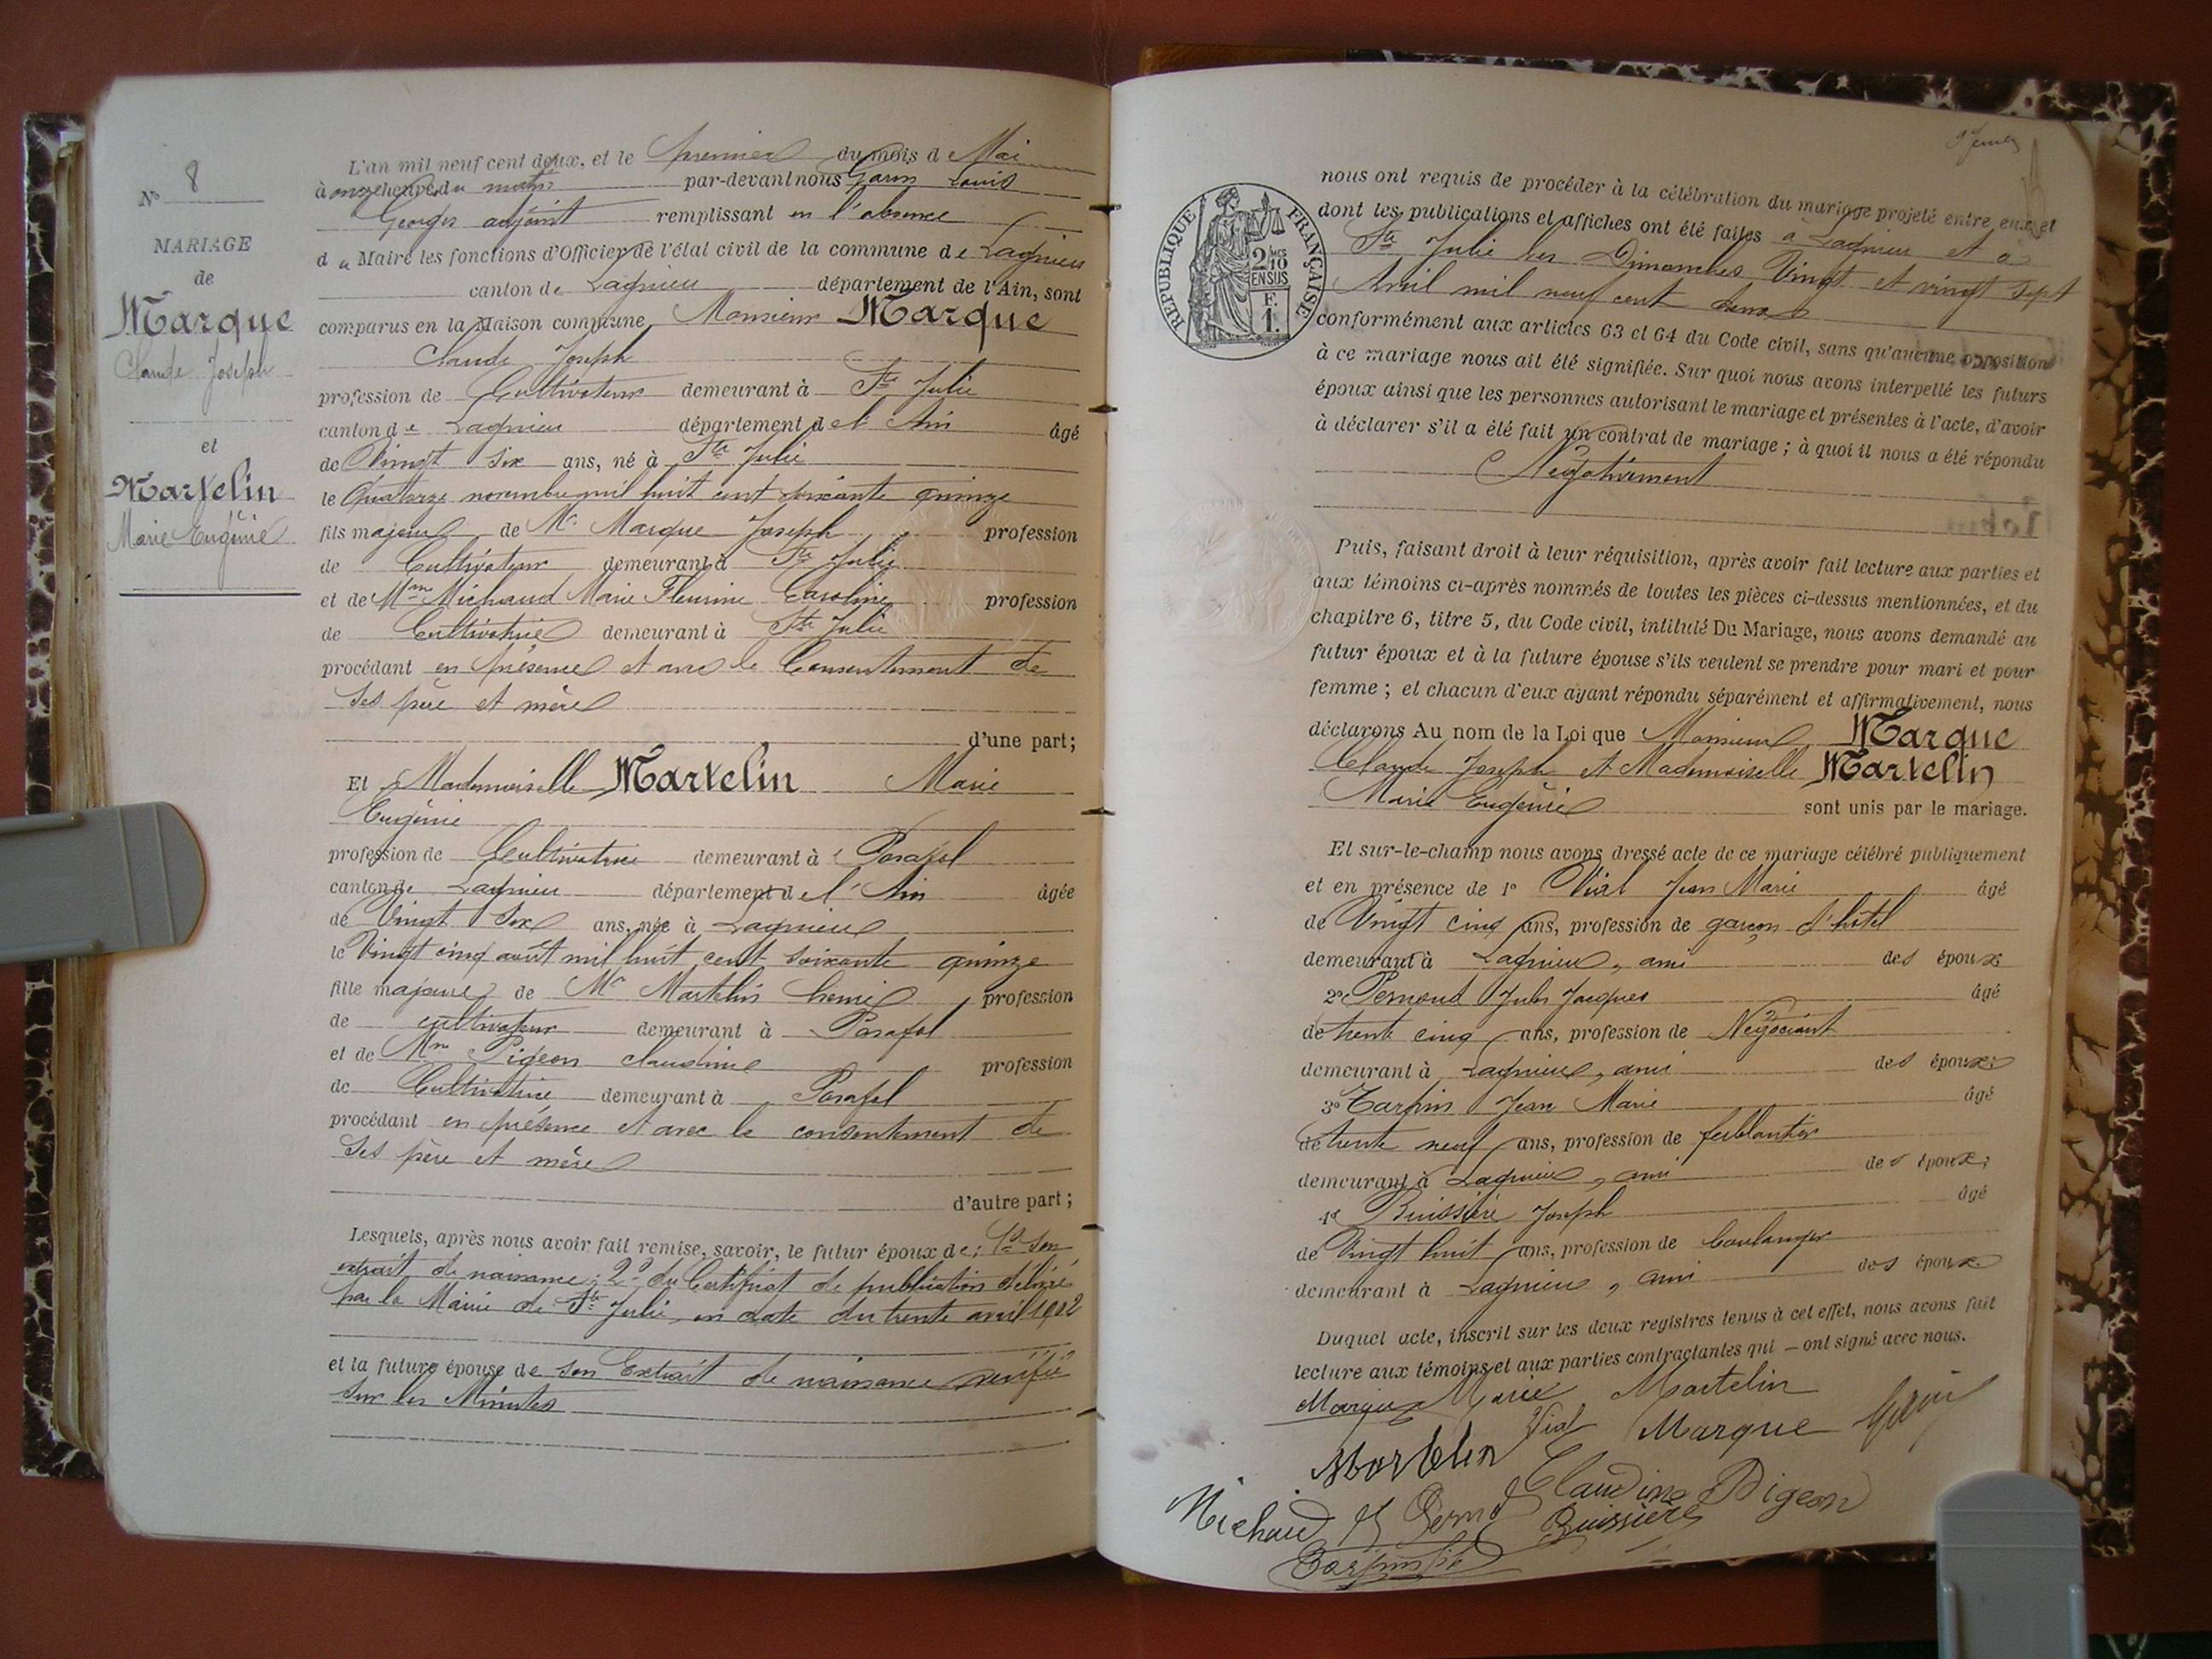 N° 8
MARIAGE
de
Marque
Claude Joseph
et
Martelin
Marie Eugénie
L'an mil neuf cent deux, et le premier du mois de Mai
à onze heures du matin par-devant nous Garin Louis
Georges adjoint remplissant en l'absence
du Maire les fonctions d'Officier de l'état civil de la commune de Lagnieu
canton de Lagnieu département de l'Ain, sont
comparus en la Maison commune Monsieur Marque
Claude Joseph
profession de Cultivateur demeurant à Ste Julie
canton de Lagnieu département de l'Ain âgé
de Vingt six ans, né à Ste Julie
le Quatorze novembre mil huit cent soixante quinze
fils majeur de Mr Marque Joseph profession
de Cultivateur demeurant à Ste Julie
et de Mme Michaud Marie Fleurine Caroline profession
de Cultivatrice demeurant à Ste Julie
procédant en présence et avec le Consentement de
ses père et mère
d'une part;
Et Mademoiselle Martelin Marie
Eugénie
profession de Cultivatrice demeurant à Posafol
canton de Lagnieu département de l'Ain âgée
de Vingt six ans, née à Lagnieu
le Vingt cinq août mil huit cent soixante quinze
fille majeure de Mr Martelin profession
de cultivateur demeurant à Posafol
et de Mme Pigeon Claudine profession
de Cultivatrice demeurant à Posafol
procédant en présence et avec le consentement de
ses père et mère
d'autre part;
Lesquels, après nous avoir fait remise, savoir, le futur époux de: 1° son
extrait de naissance; 2° du Certificat de publication délivré
par la Mairie de Ste Julie en date du trente avril 1902
et la future épouse de son Extrait de naissance vérifié
sur les Minutes
RÉPUBLIQUE FRANÇAISE
2/10 MES
EN SUS
F.
1.
nous ont requis de procéder à la célébration du mariage projeté entre eux et
dont les publications et affiches ont été faites à Lagnieu et à
Ste Julie les Dimanches Vingt et vingt sept
Avril mil neuf cent deux
conformément aux articles 63 et 64 du Code civil, sans qu'aucune opposition
à ce mariage nous ait été signifiée. Sur quoi nous avons interpellé les futurs
époux ainsi que les personnes autorisant le mariage et présentes à l'acte, d'avoir
à déclarer s'il a été fait un contrat de mariage; à quoi il nous a été répondu
Négativement
Puis, faisant droit à leur réquisition, après avoir fait lecture aux parties et
aux témoins ci-après nommés de toutes les pièces ci-dessus mentionnées, et du
chapitre 6, titre 5, du Code civil, intitulé Du Mariage, nous avons demandé au
futur époux et à la future épouse s'ils veulent se prendre pour mari et pour
femme; et chacun d'eux ayant répondu séparément et affirmativement, nous
déclarons Au nom de la Loi que Monsieur Marque
Claude Joseph et Mademoiselle Martelin
Marie Eugénie sont unis par le mariage.
Et sur-le-champ nous avons dressé acte de ce mariage célébré publiquement
et en présence de 1° Vial Jean Marie âgé
de Vingt cinq ans, profession de garçon d'hôtel
demeurant à Lagnieu, ami des époux
2° Pernoud Jules Jacques âgé
de trente cinq ans, profession de Négociant
demeurant à Lagnieu, ami des époux;
3° Tarpin Jean Marie âgé
de trente neuf ans, profession de ferblantier
demeurant à Lagnieu, ami des époux;
4° Buissière Joseph âgé
de Vingt huit ans, profession de boulanger
demeurant à Lagnieu, ami des époux
Duquel acte, inscrit sur les deux registres tenus à cet effet, nous avons fait
lecture aux témoins et aux parties contractantes qui — ont signé avec nous.
Marque Marie Martelin
Martelin Vial Marque Garin
Claudine Pigeon
Michaud Buissière
Tarpin